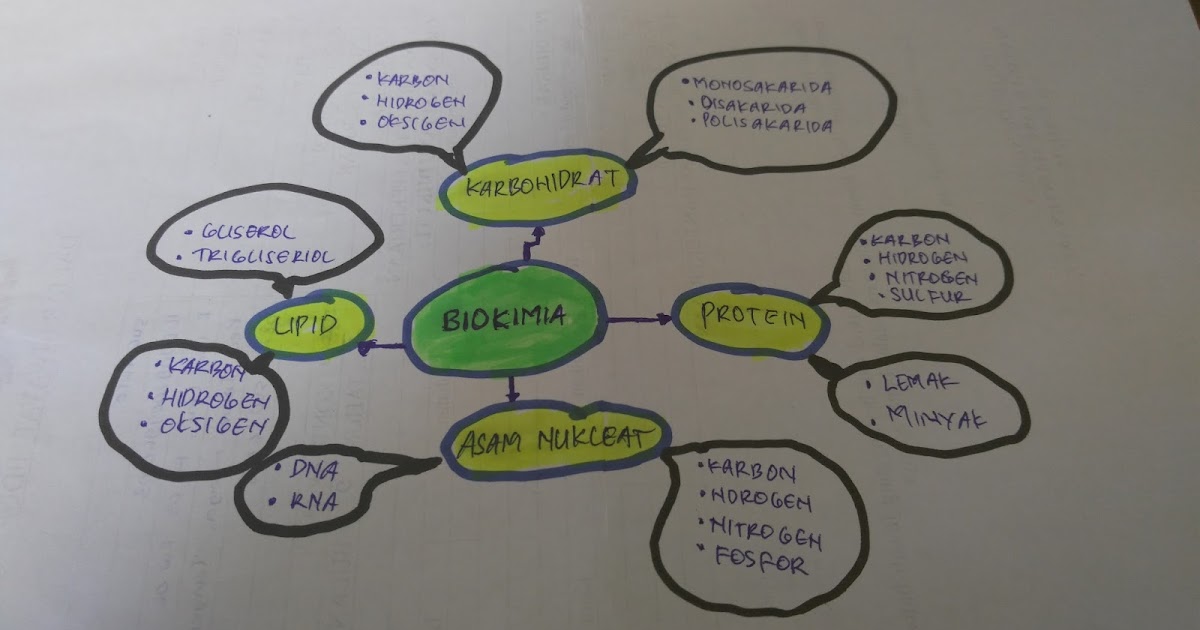 • KARBON
• HIDROGEN
• OKSIGEN
• MONOSAKARIDA
• DISAKARIDA
• POLISAKARIDA
KARBOHIDRAT
• GLISEROL
• TRIGLISERIOL
• KARBON
• HIDROGEN
• NITROGEN
• SULFUR
LIPID
BIOKIMIA
PROTEIN
• KARBON
• HIDROGEN
• OKSIGEN
• LEMAK
• MINYAK
ASAM NUKLEAT
• DNA
• RNA
• KARBON
• HDROGEN
• NITROGEN
• FOSFOR